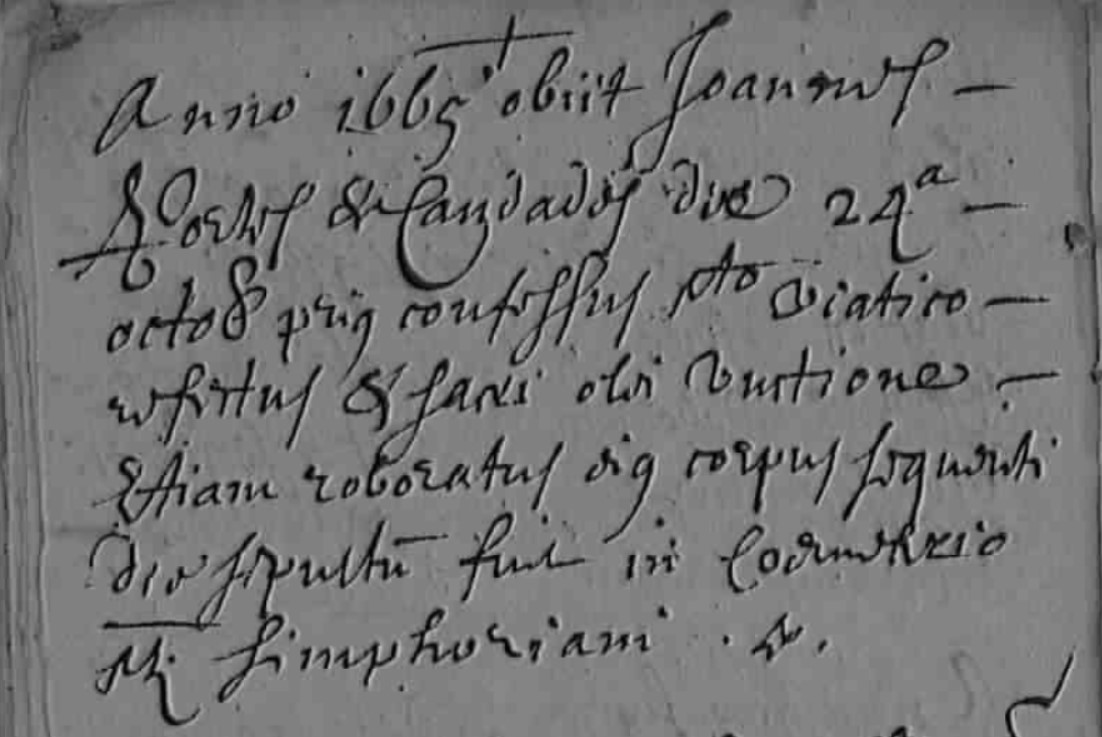 Anno 1665 obiit Joannes —
de Candados die 24ª —
octob priq confessus sto viatico —
refectus & sacri olei Unctione —
Etiam roboratus eiq corpus sequenti
die sepultū fuit in Coemeterio
Sti Simphoriani